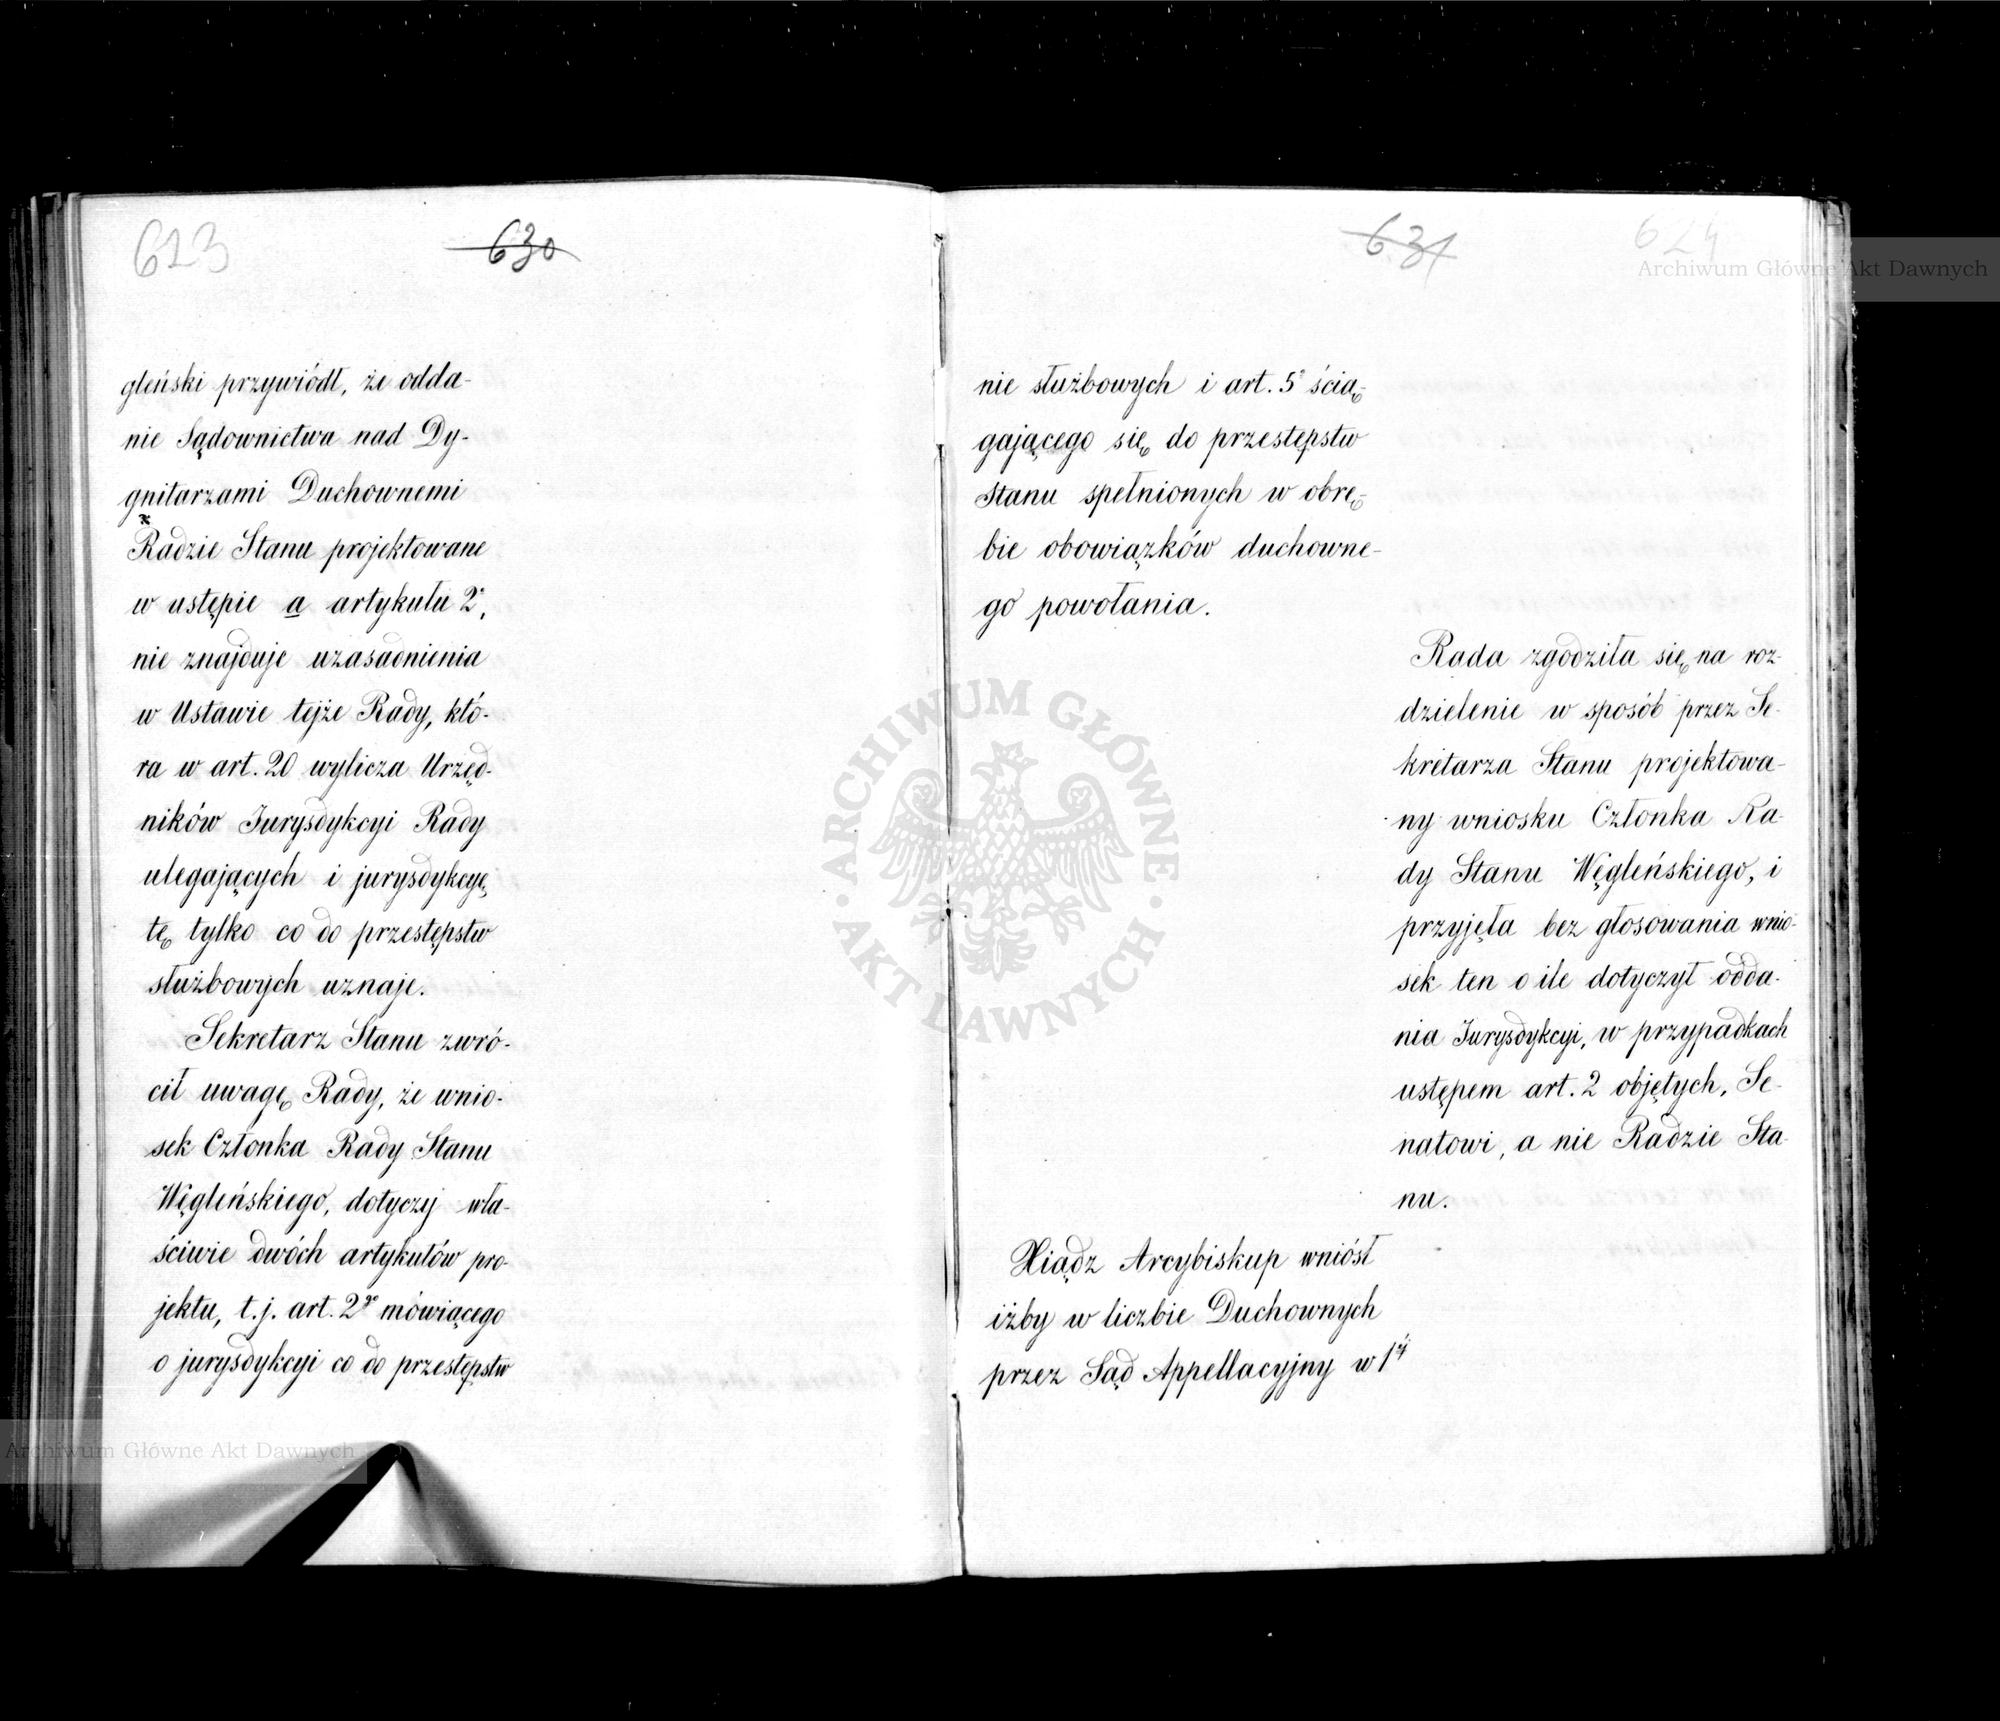 623
630
gleński przywiódł, że odda-
nie Sądownictwa nad Dy-
gnitarzami Duchownemi
Radzie Stanu projektowane
w ustępie a artykułu 2°,
nie znajduje uzasadnienia
w Ustawie tejże Rady, któ-
ra w art. 20 wylicza Urzęd-
ników Jurysdykcyi Rady
ulegających i jurysdykcyę
tę tylko co do przestępstw
służbowych uznaje.
Sekretarz Stanu zwró-
cił uwagę Rady, że wnio-
sek Członka Rady Stanu
Węgleńskiego, dotyczy wła-
ściwie dwóch artykułów pro-
jektu, t.j. art. 2go mówiącego
o jurysdykcyi co do przestępstw
631
624
nie służbowych i art. 5° ścią-
gającego się do przestępstw
stanu spełnionych w obrę-
bie obowiązków duchowne-
go powołania.
Rada zgodziła się na roz-
dzielenie w sposób przez Se-
kretarza Stanu projektowa-
ny wniosku Członka Ra-
dy Stanu Węgleńskiego, i
przyjęła bez głosowania wnio-
sek ten o ile dotyczył odda-
nia Jurysdykcyi, w przypadkach
ustępem art. 2 objętych, Se-
natowi, a nie Radzie Sta-
nu.
Xiądz Arcybiskup wniósł
iżby w liczbie Duchownych
przez Sąd Appellacyjny w 1éj
Archiwum Główne Akt Dawnych
ARCHIWUM GŁÓWNE
AKT DAWNYCH
Archiwum Główne Akt Dawnych